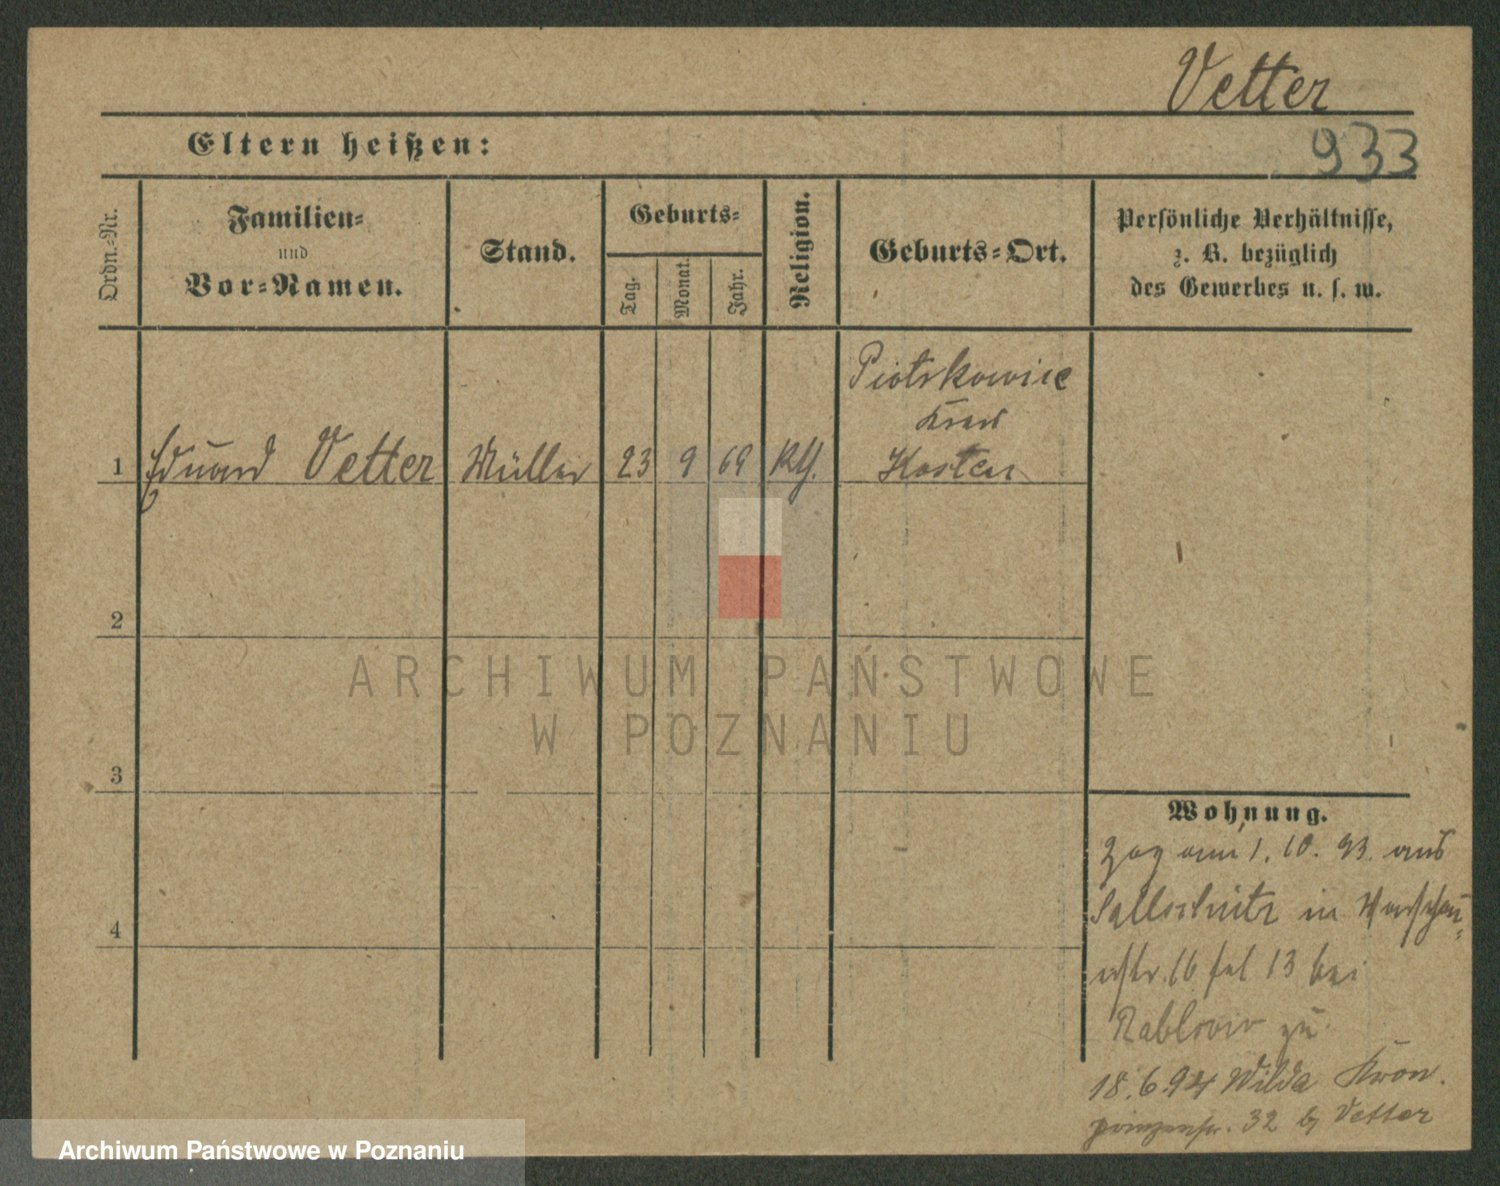 Vetter
Eltern heißen:
933
Ordn.-Nr.
Familien-
und
Vor-Namen.
Stand.
Geburts-
Tag.
Monat.
Jahr.
Religion.
Geburts-Ort.
Persönliche Verhältnisse,
z. B. bezüglich
des Gewerbes u. s. w.
Piotrkowice
Kreis
1 Eduard Vetter Müller 23 9 69 Kth. Kosten
2
ARCHIWUM PAŃSTWOWE
W POZNANIU
3
Wohnung.
Zog am 1. 10. 93. aus
in Warschau-
4
rstr. 16 bei
zu
18.6.94 Wilda Kron-
prinzenstr. 32 b/ Vetter
Archiwum Państwowe w Poznaniu